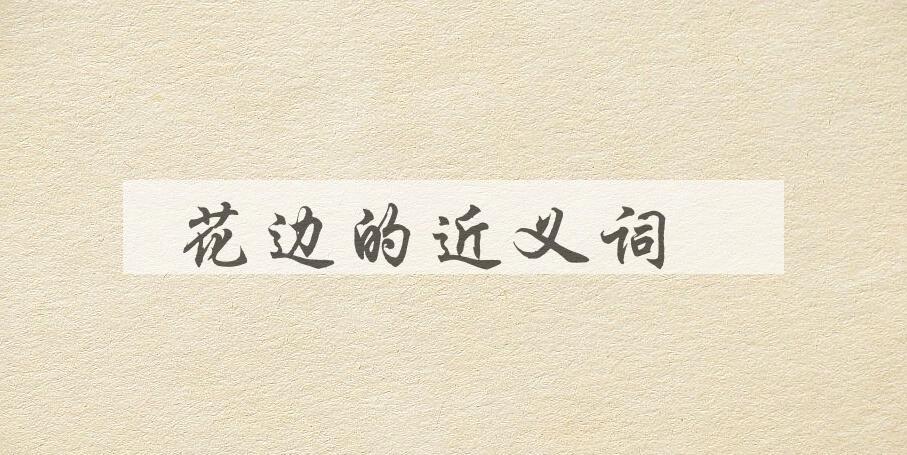 花边的近义词